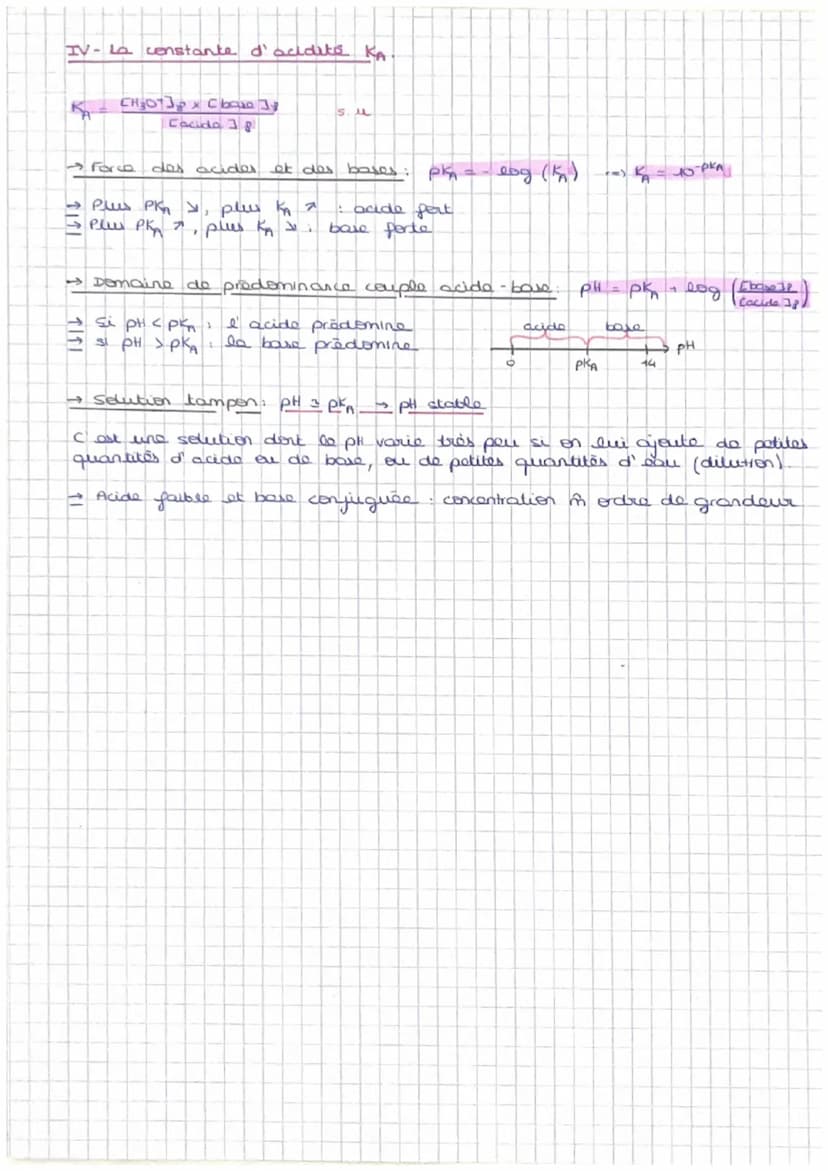 IV - La constante d'acidité KA.
KA = [H3O+]f × [base]f / [acide]f s.u
→ Force des acides et des bases : pKA = - log (KA) ⇒ KA = 10^-pKA
⇒ Plus PKA ↘, plus KA ↗ : acide fort
⇒ Plus PKA ↗, plus KA ↘ : base forte
→ Domaine de prédominance couple acide-base : pH = pKA + log ([base]f / [acide]f)
⇒ Si pH < pKA : l'acide prédomine
⇒ si pH > pKA : la base prédomine
acide base
0 PKA 14 pH
→ Solution tampon : pH ≃ pKA → pH stable
C'est une solution dont le pH varie très peu si on lui ajoute de petites
quantités d'acide ou de base, ou de petites quantités d'eau (dilution).
⇒ Acide faible et base conjuguée : concentration m̂ ordre de grandeur